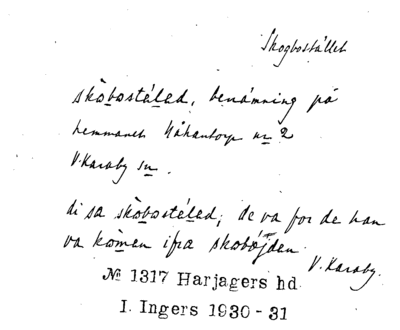 Skogbostället
skòbostéled, benämning på
hemmanet Håkantorp nr 2
V. Karaby sn.
di sa skòbostéled; de va for de han
va kòmen ifra skoböjden
V. Karaby.
№ 1317 Harjagers hd
I. Ingers 1930-31